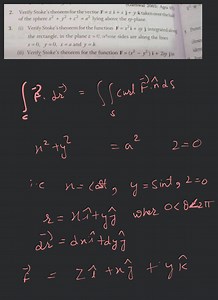 2. Verify Stoke's theorem for the vector F = z i + x j + y k taken over the half
of the sphere x² + y² + z² = a² lying above the xy-plane.
3. (i) Verify Stoke's theorem for the function F = x² i + xy j integrated along
the rectangle, in the plane z = 0, whose sides are along the lines
x = 0, y = 0, x = a and y = b.
(ii) Verify Stoke's theorem for the function F = (x² − y²) i + 2xy j
∫_c F⃗. dr⃗ = ∫∫_s curl F⃗. n̂ ds
x² + y² = a² z = 0
i.e x = a cos t, y = a sin t, z = 0
r = x î + y ĵ where 0 < θ < 2π
dr⃗ = dx î + dy ĵ
F⃗ = z î + x ĵ + y k̂